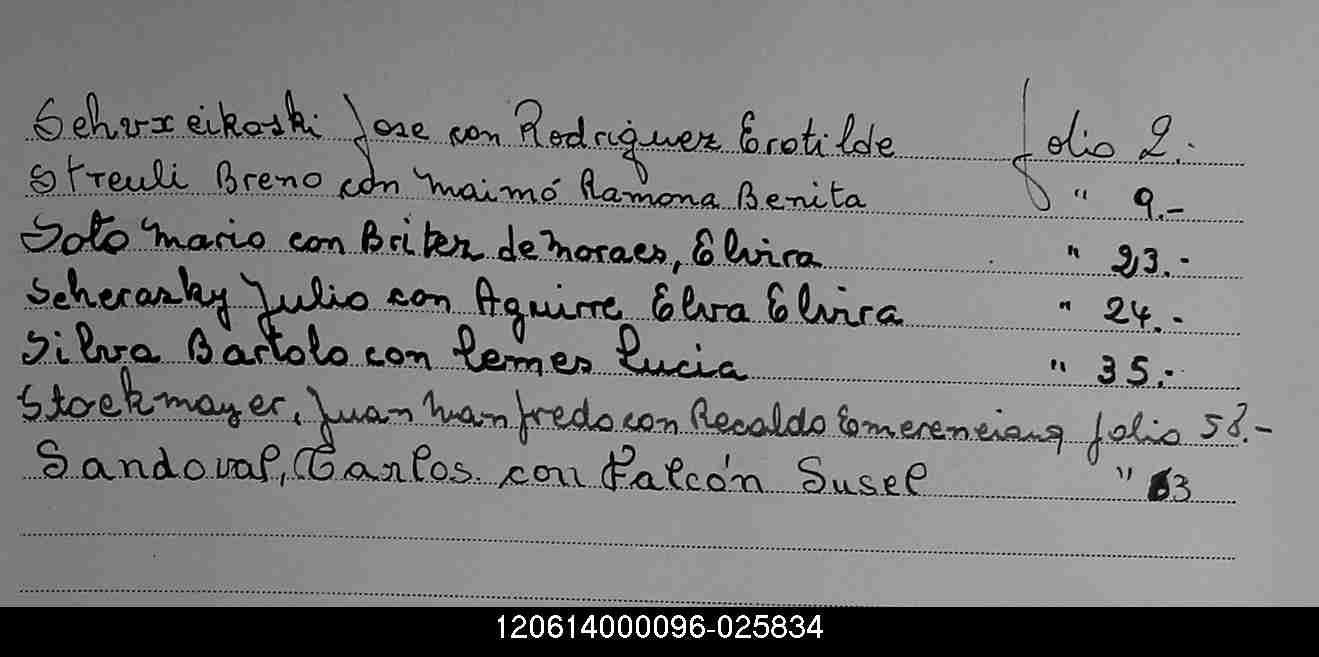 Schvxeikoski Jose con Rodriguez Erotilde folio 2.-
Streuli Breno con Maimó Ramona Benita " 9.-
Soto Mario con Britez de Moraes, Elvira " 23.-
Scherasky Julio con Aguirre Elva Elvira " 24.-
Silva Bartolo con Lemes Lucia " 35.-
Stockmayer, Juan Manfredo con Recaldo Emerenciana folio 58.-
Sandoval, Carlos con Falcón Susel " 63
120614000096-025834